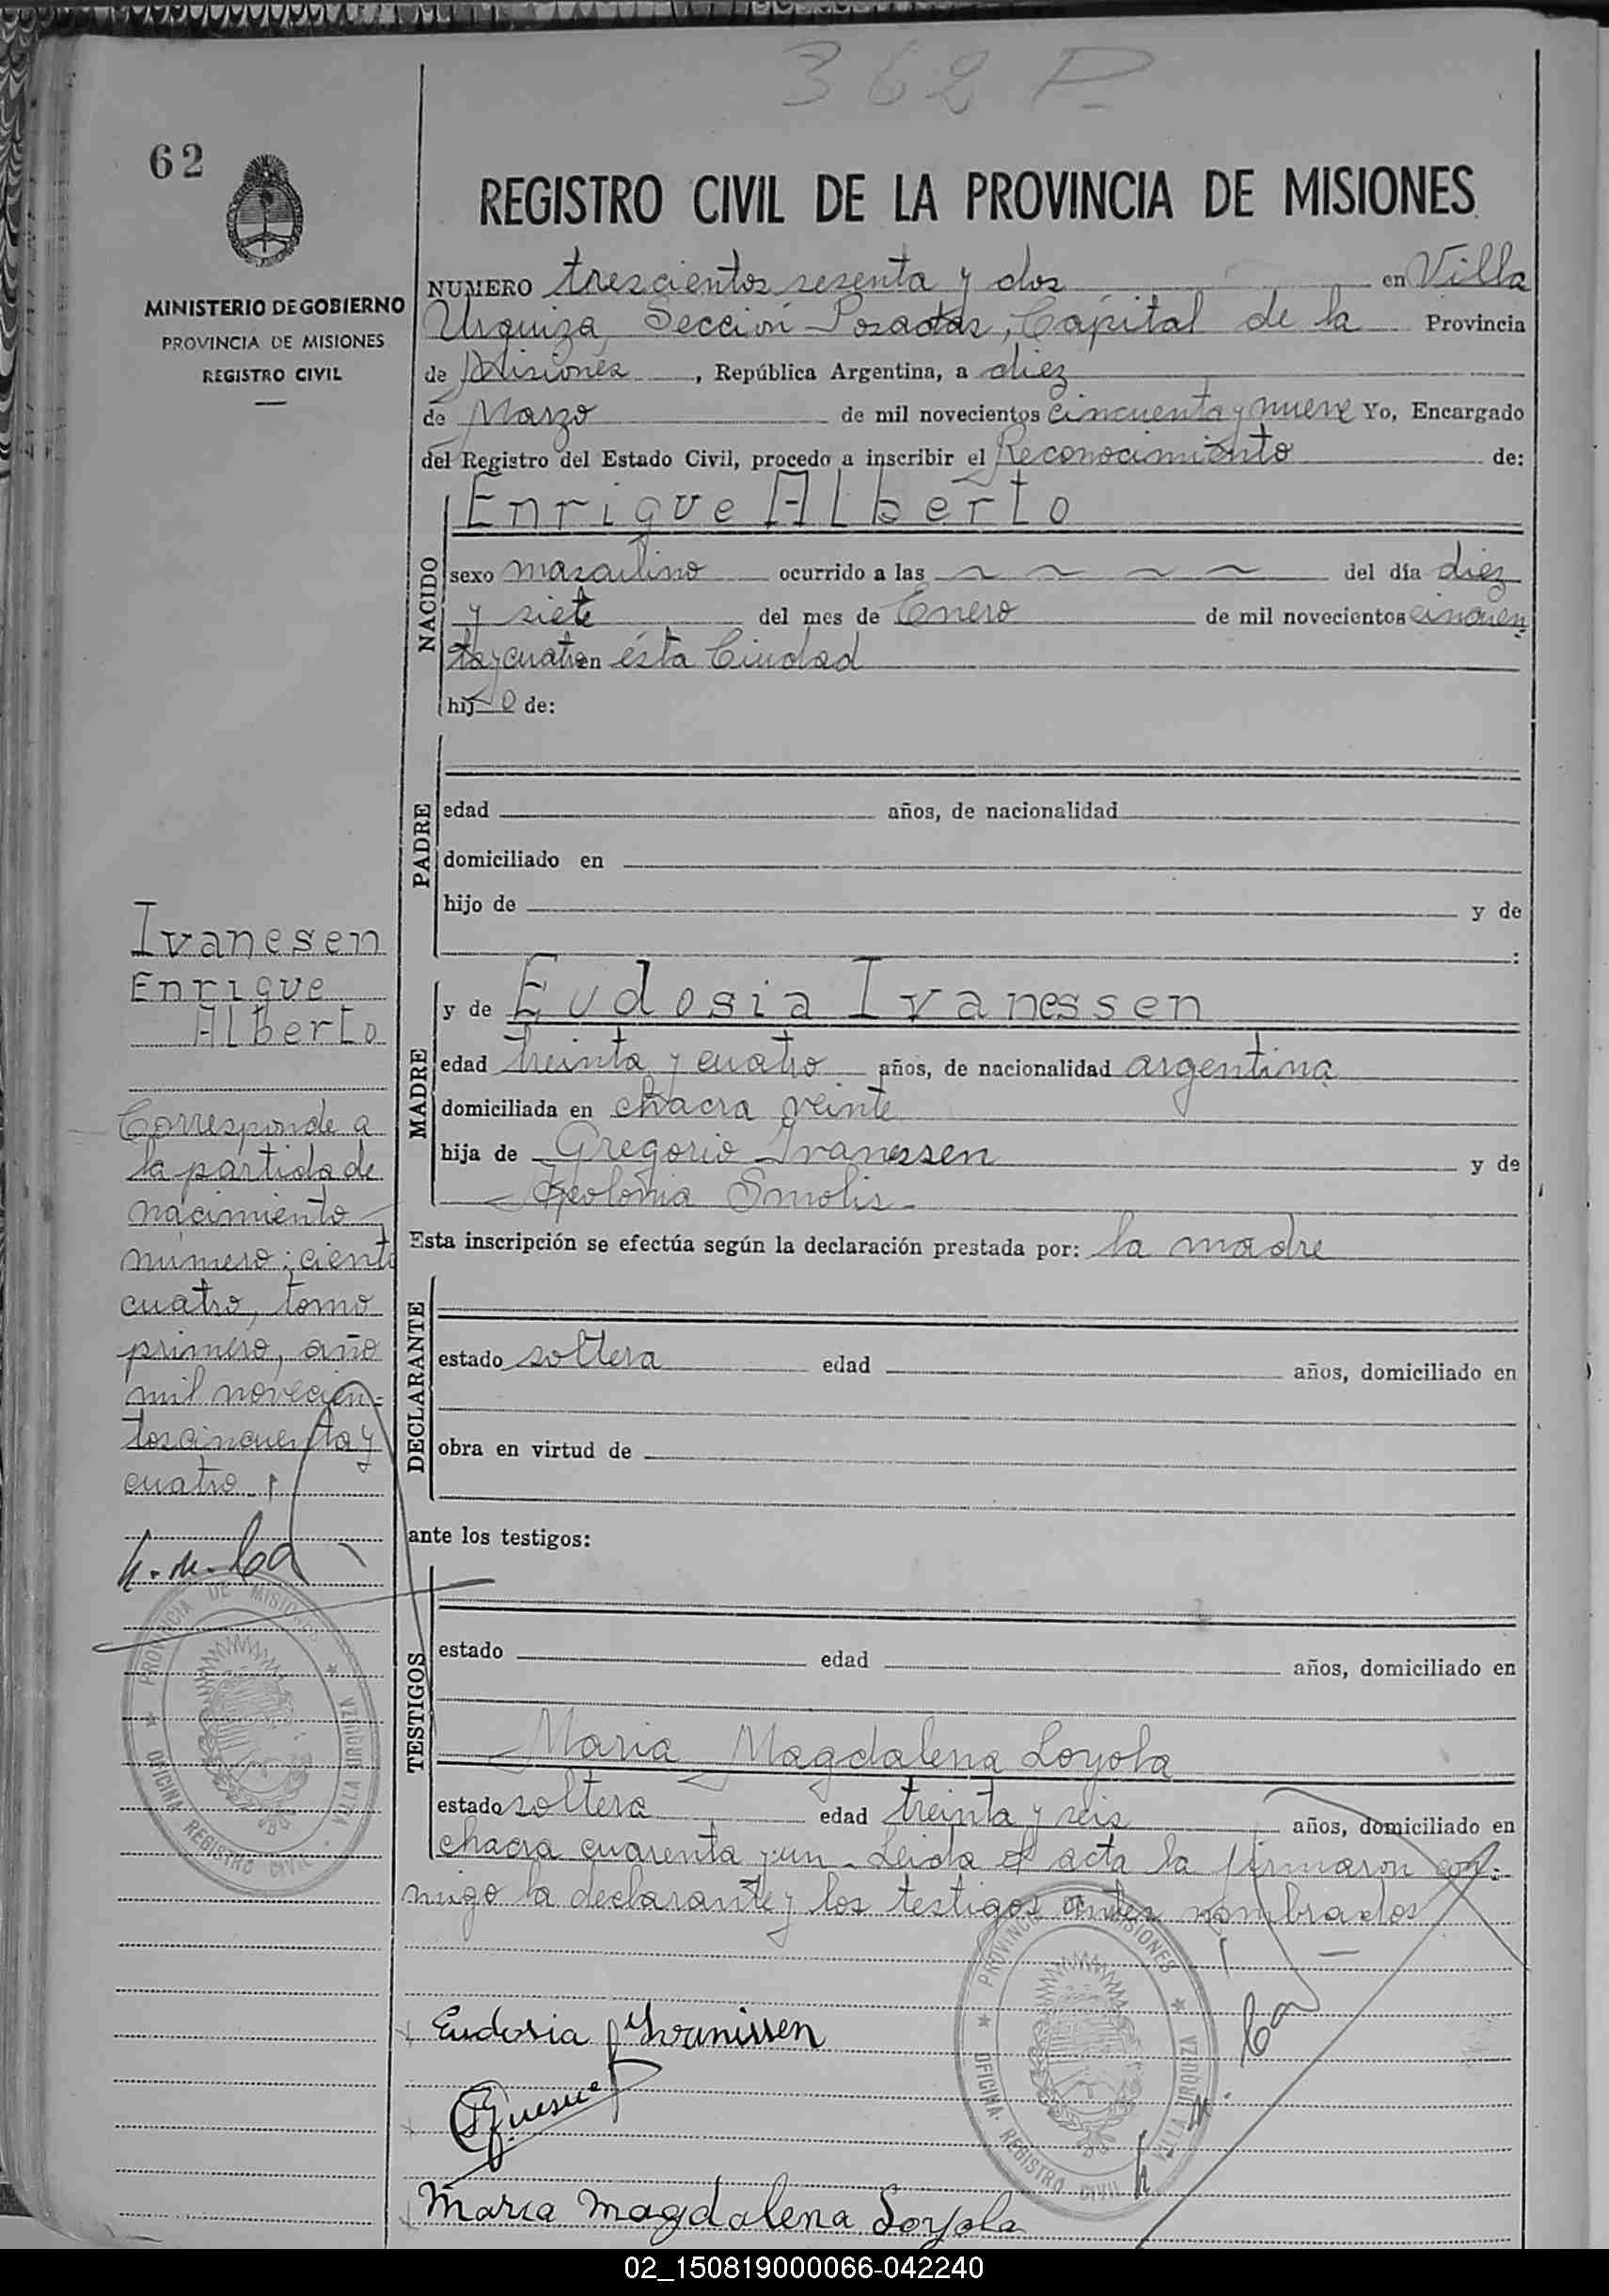 362 P
62
REGISTRO CIVIL DE LA PROVINCIA DE MISIONES
MINISTERIO DE GOBIERNO
PROVINCIA DE MISIONES
REGISTRO CIVIL
NUMERO trescientos sesenta y dos en Villa
Urquiza, Sección Posadas, Capital de la Provincia
de Misiones, República Argentina, a diez
de Marzo de mil novecientos cincuenta y nueve Yo, Encargado
del Registro del Estado Civil, procedo a inscribir el Reconocimiento de:
Enrique Alberto
NACIDO
sexo masculino ocurrido a las ~ ~ ~ ~ del día diez
y siete del mes de Enero de mil novecientos cincuen
ta y cuatro en ésta Ciudad
hijo de:
PADRE
edad años, de nacionalidad
domiciliado en
hijo de y de
:
Ivanesen
Enrique
Alberto
Corresponde a
la partida de
nacimiento
número: ciento
cuatro, tomo
primero, año
mil novecien-
tos cincuenta y
cuatro
MADRE
y de Eudosia Ivanessen
edad treinta y cuatro años, de nacionalidad argentina
domiciliada en chacra veinte
hija de Gregorio Ivanessen y de
Apolonia Smolis
Esta inscripción se efectúa según la declaración prestada por: la madre
DECLARANTE
estado soltera edad años, domiciliado en
obra en virtud de
ante los testigos:
TESTIGOS
estado edad años, domiciliado en
Maria Magdalena Loyola
estado soltera edad treinta y seis años, domiciliado en
chacra cuarenta y un - Leida el acta la firmaron con-
migo la declarante y los testigos antes nombrados
PROVINCIA DE MISIONES
OFICINA REGISTRO CIVIL
VILLA URQUIZA
PROVINCIA DE MISIONES
OFICINA REGISTRO CIVIL
VILLA URQUIZA
Eudosia Ivanissen
Maria Magdalena Loyola
02_150819000066-042240